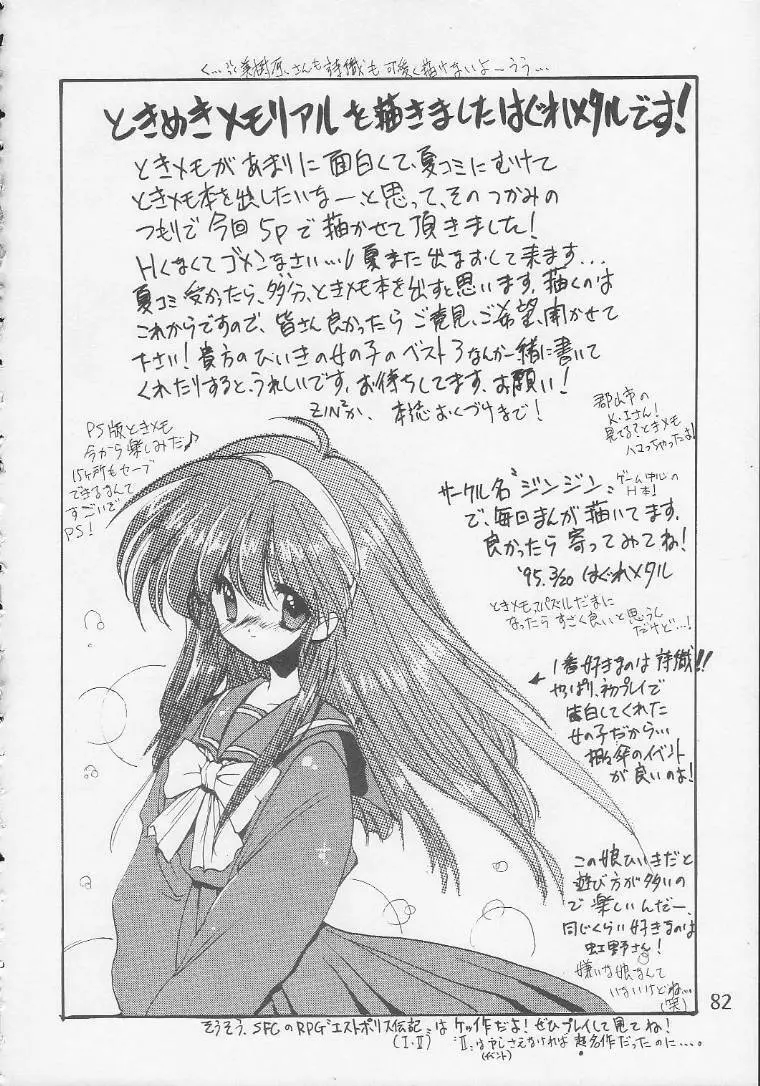 く…美樹原さんも詩織も可愛く描けないよーうぅ…
ときめきメモリアルを描きましたはぐれメタルです!
ときメモがあまりに面白くて、夏コミにむけて
ときメモ本を出したいなー、と思って、そのつかみの
つもりで今回5Pで描かせて頂きました!
Hくなくてゴメンなさい…! 夏また出なおして来ます…
夏コミ受かったら、多分、ときメモ本を出すと思います。描くのは
これからですので、皆さん良かったらご意見、ご希望、聞かせて
下さい! 貴方のひいきの女の子のベスト3なんか一緒に書いて
くれたりすると、うれしいです。お待ちしてます。お願い!
ZIN²か、本誌おくづけまで!
郡山市の
K.Iさん!
見てる?ときメモ
ハマっちゃったよ!
PS版ときメモ
今から楽しみだ♪
15ヶ所もセーブ
できるなんて
すごいぞ
PS!
サークル名“ジンジン”
ゲーム中心の
H本!
で、毎回まんが描いてます。
良かったら寄ってみてね!
'95.3/20 はぐれメタル
ときメモスパズルだまに
なったらすごく良いと思うし
だけど…!
1番好きなのは詩織!!
やっぱり、初プレイで
告白してくれた
女の子だから…
相々傘のイベント
が良いのよ!
この娘ひいきだと
遊び方が多いの
で楽しいんだー、
同じくらい好きなのは
虹野さん!
嫌いな娘なんて
いないけどね…
(笑)
82
そうそう、SFCのRPG“エストポリス伝記”はケッ作だよ!ぜひプレイして見てね!
(I・II)
“II”は
さえなければ超名作だったのに…。